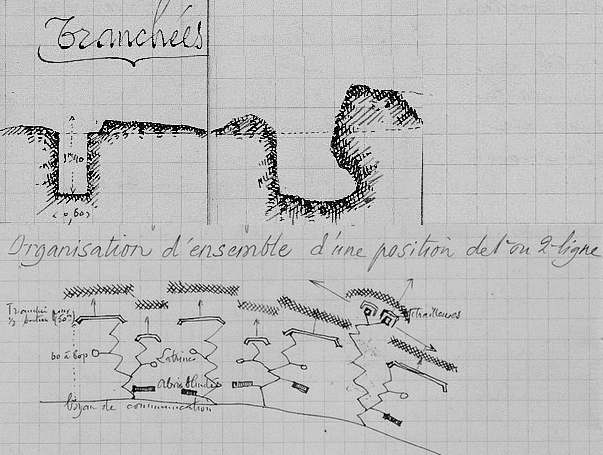 Tranchées
1m40
0,60
Organisation d'ensemble d'une position de 1e ou 2e ligne
Mitrailleuses
Tranchée pour
½ section (50m)
60 à 80p
Latrines
Abris blindés
Boyau de communication